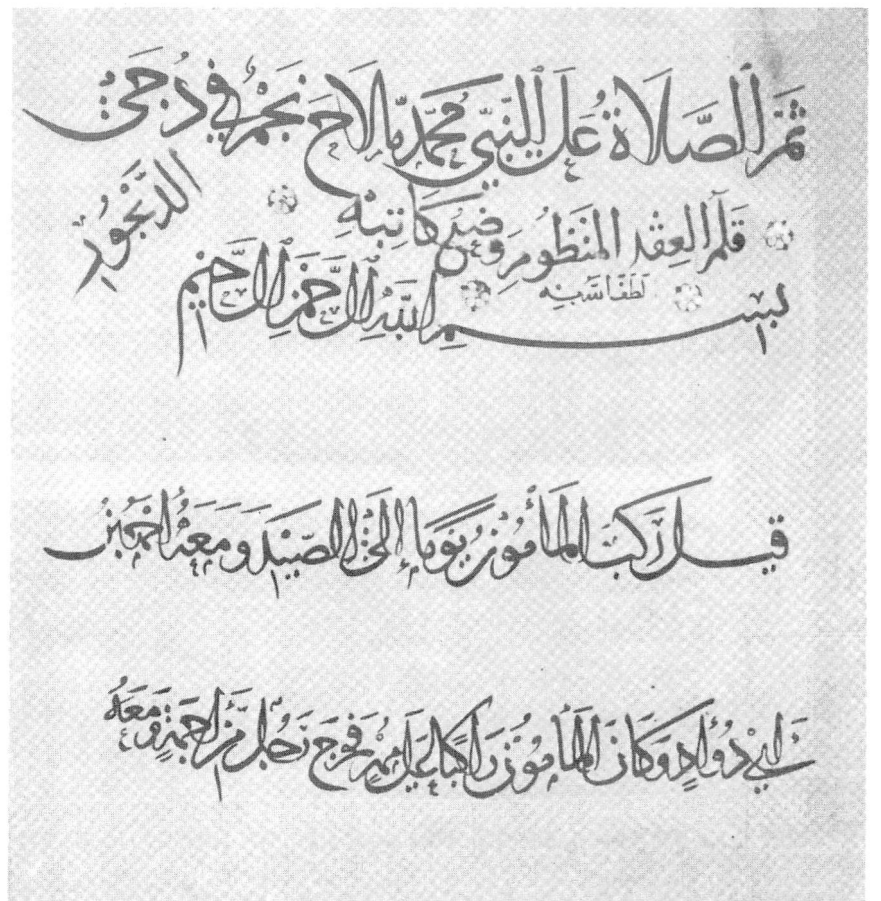 ثُمَّ الصَّلَاةُ عَلَى النَّبِيِّ مُحَمَّدٍ مَا لَاحَ نَجْمٌ فِي دُجَى
الدَّيْجُورِ
قَلَمُ العِقْدِ المَنْظُومِ وَضْعُ كَاتِبِهِ
بِسْمِ اللَّهِ الرَّحْمَنِ الرَّحِيمِ
قِيلَ رَكِبَ المَأْمُونُ يَوْمًا إِلَى الصَّيْدِ وَمَعَهُ أَحْمَدُ بْنُ
أَبِي دُؤَادٍ وَكَانَ المَأْمُونُ رَاكِبًا عَلَى مُهْرٍ فَخَرَجَ رَجُلٌ مِنْ أَجَمَةٍ وَمَعَهُ